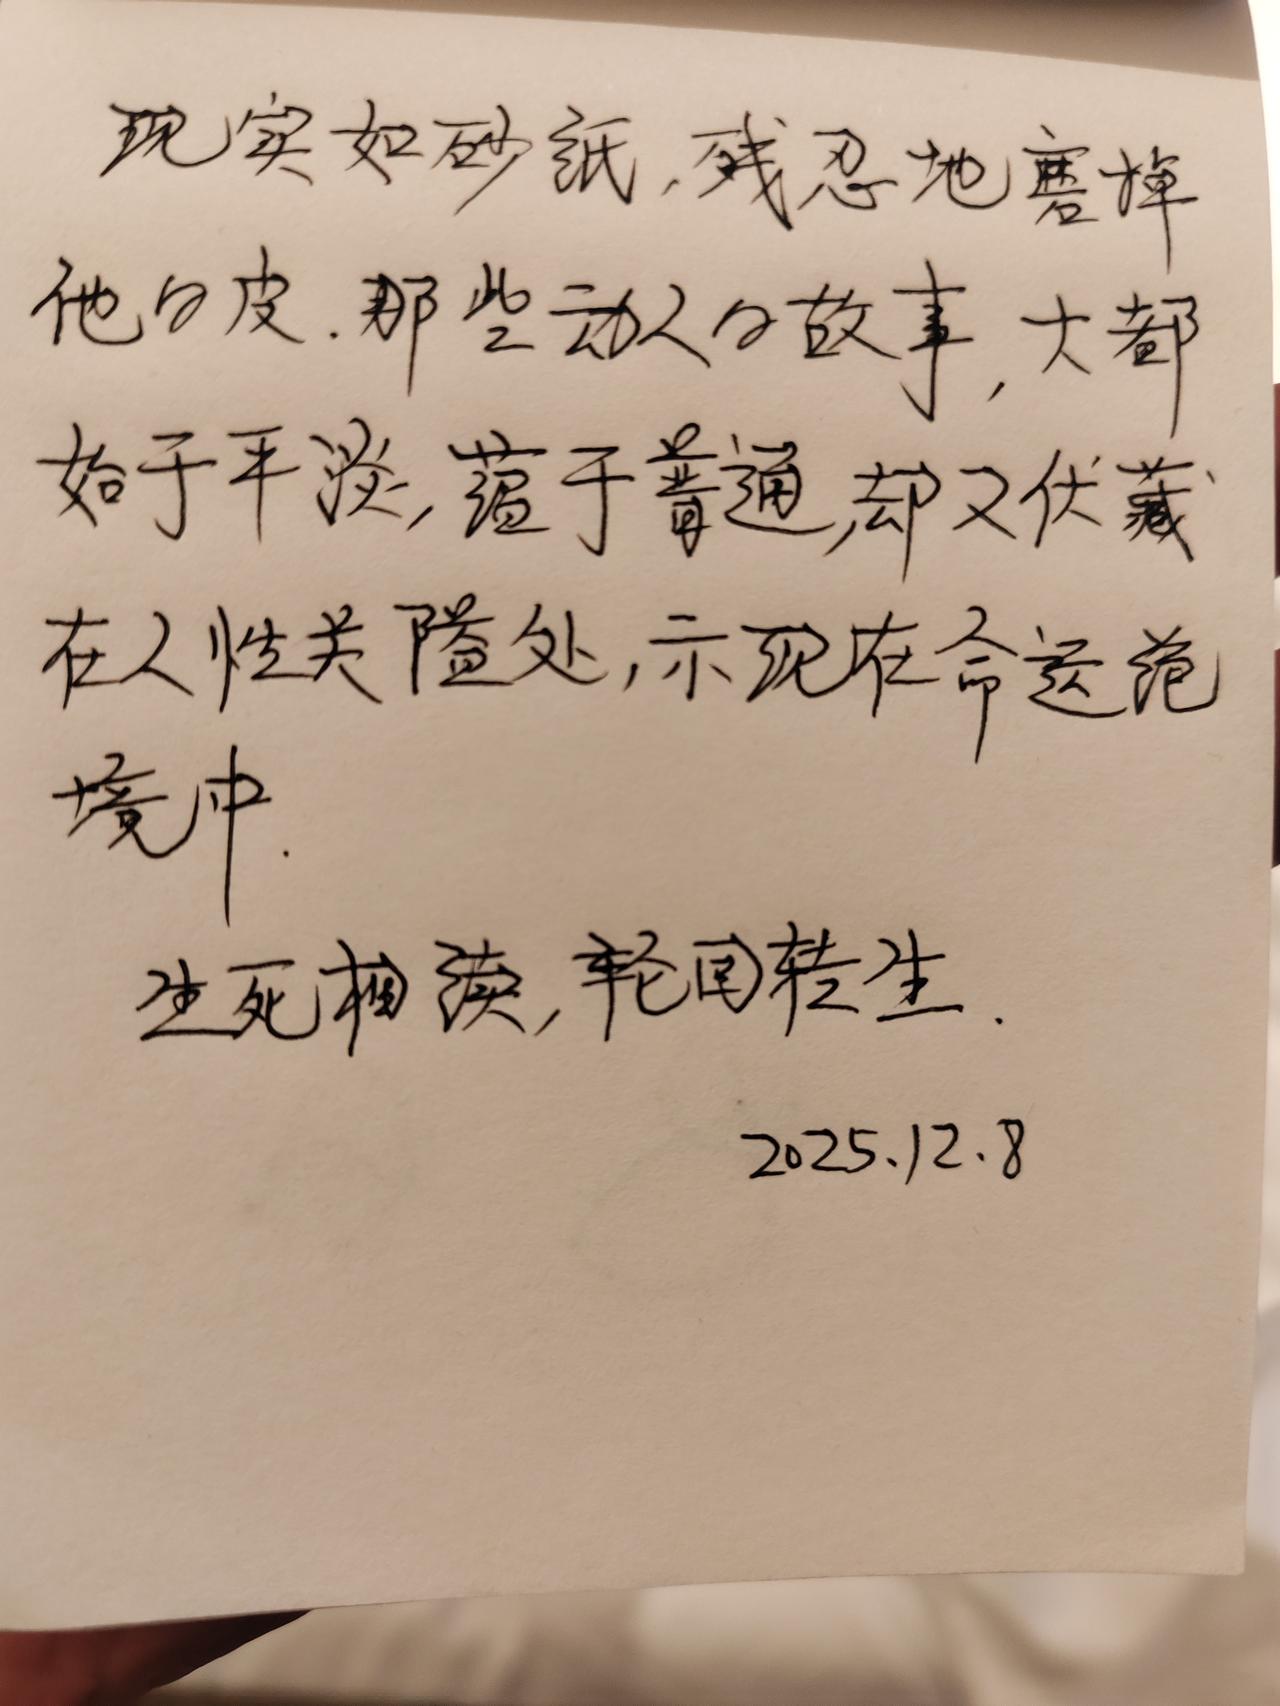 现实如砂纸,残忍地磨掉
他的皮.那些动人的故事,大都
始于平淡,蕴于普通,却又伏藏
在人性关隘处,示现在命运苑
境中.
生死相续,轮回转生.
2025.12.8